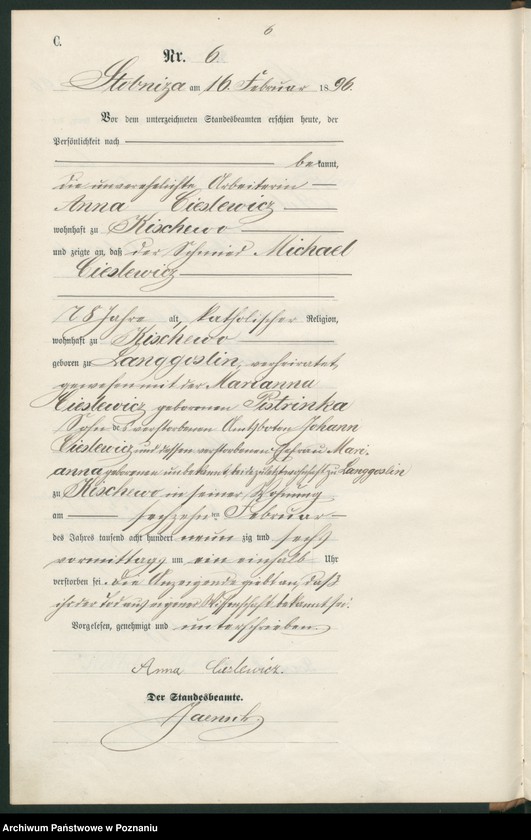 6
C.
Nr. 6
Stobniza am 16 Februar 1896.
Vor dem unterzeichneten Standesbeamten erschien heute, der
Persönlichkeit nach
bekannt,
die unverehelichte Arbeiterin
Anna Cieslewicz
wohnhaft zu Kischewo
und zeigte an, daß der Schmied Michael
Cieslewicz
78 Jahre alt, katholischer Religion,
wohnhaft zu Kischewo
geboren zu Langgoslin, verheiratet
gewesen mit der Marianna
Cieslewicz geborenen Pstrinka
Sohn des verstorbenen Amtsboten Johann
Cieslewicz und dessen verstorbenen Ehefrau Mari-
anna geborenen unbekannt beide zuletzt wohnhaft zu Langgoslin
zu Kischewo in seiner Wohnung
am sechzehnten Februar
des Jahres tausend acht hundert neunzig und sechs
vormittags um ein einhalb Uhr
verstorben sei. Die Anzeigende giebt an, daß
ihr der Tod aus eigener Wissenschaft bekannt sei.
Vorgelesen, genehmigt und unterschrieben
Anna Cieslewicz.
Der Standesbeamte.
Archiwum Państwowe w Poznaniu